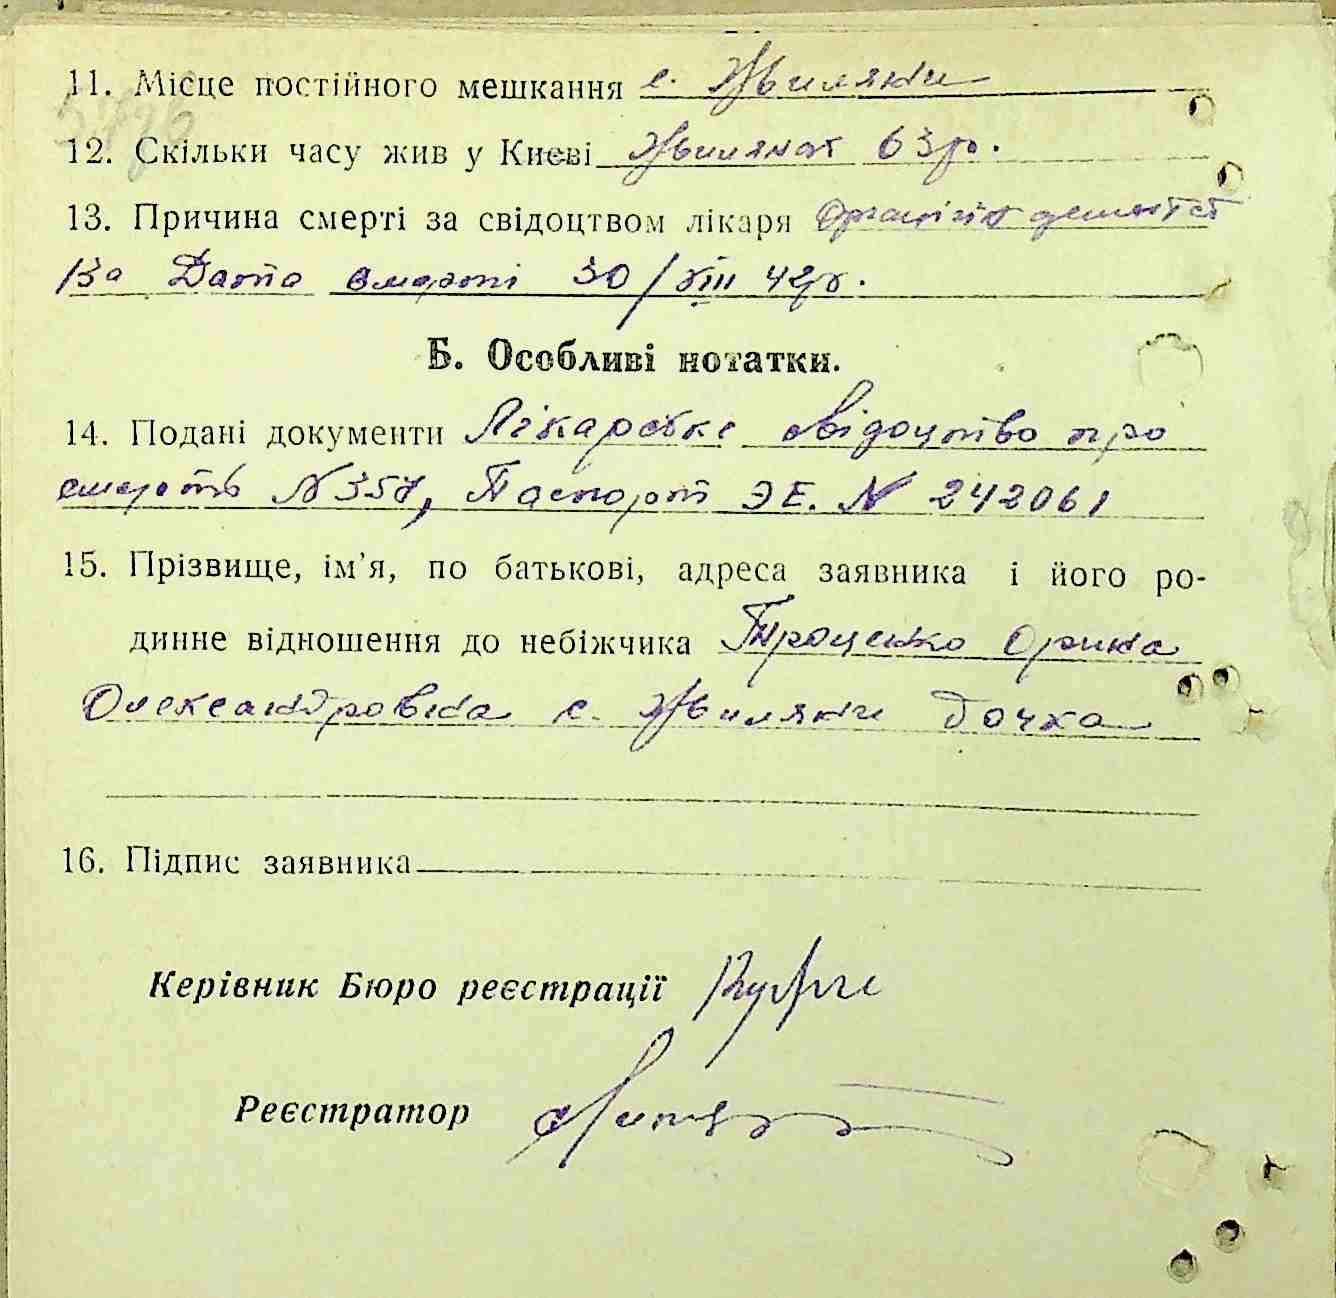 11. Місце постійного мешкання с. Жвиляки
12. Скільки часу жив у Києві 63 р.
13. Причина смерті за свідоцтвом лікаря
Дата смерті 30/VIII 42 р.
Б. Особливі нотатки.
14. Подані документи Лікарське свідоцтво про
смерть N 357, Паспорт ЭЕ. N 242061
15. Прізвище, ім'я, по батькові, адреса заявника і його ро-
динне відношення до небіжчика Троценко Орина
Олександровна с. Жвиляки дочка
16. Підпис заявника
Керівник Бюро реєстрації
Реєстратор